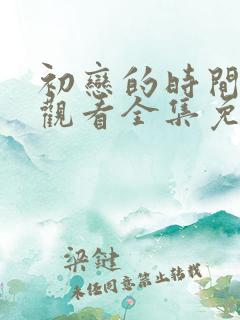 初戀的時間
觀看全集免
梁鍵
未経同意禁止轉載